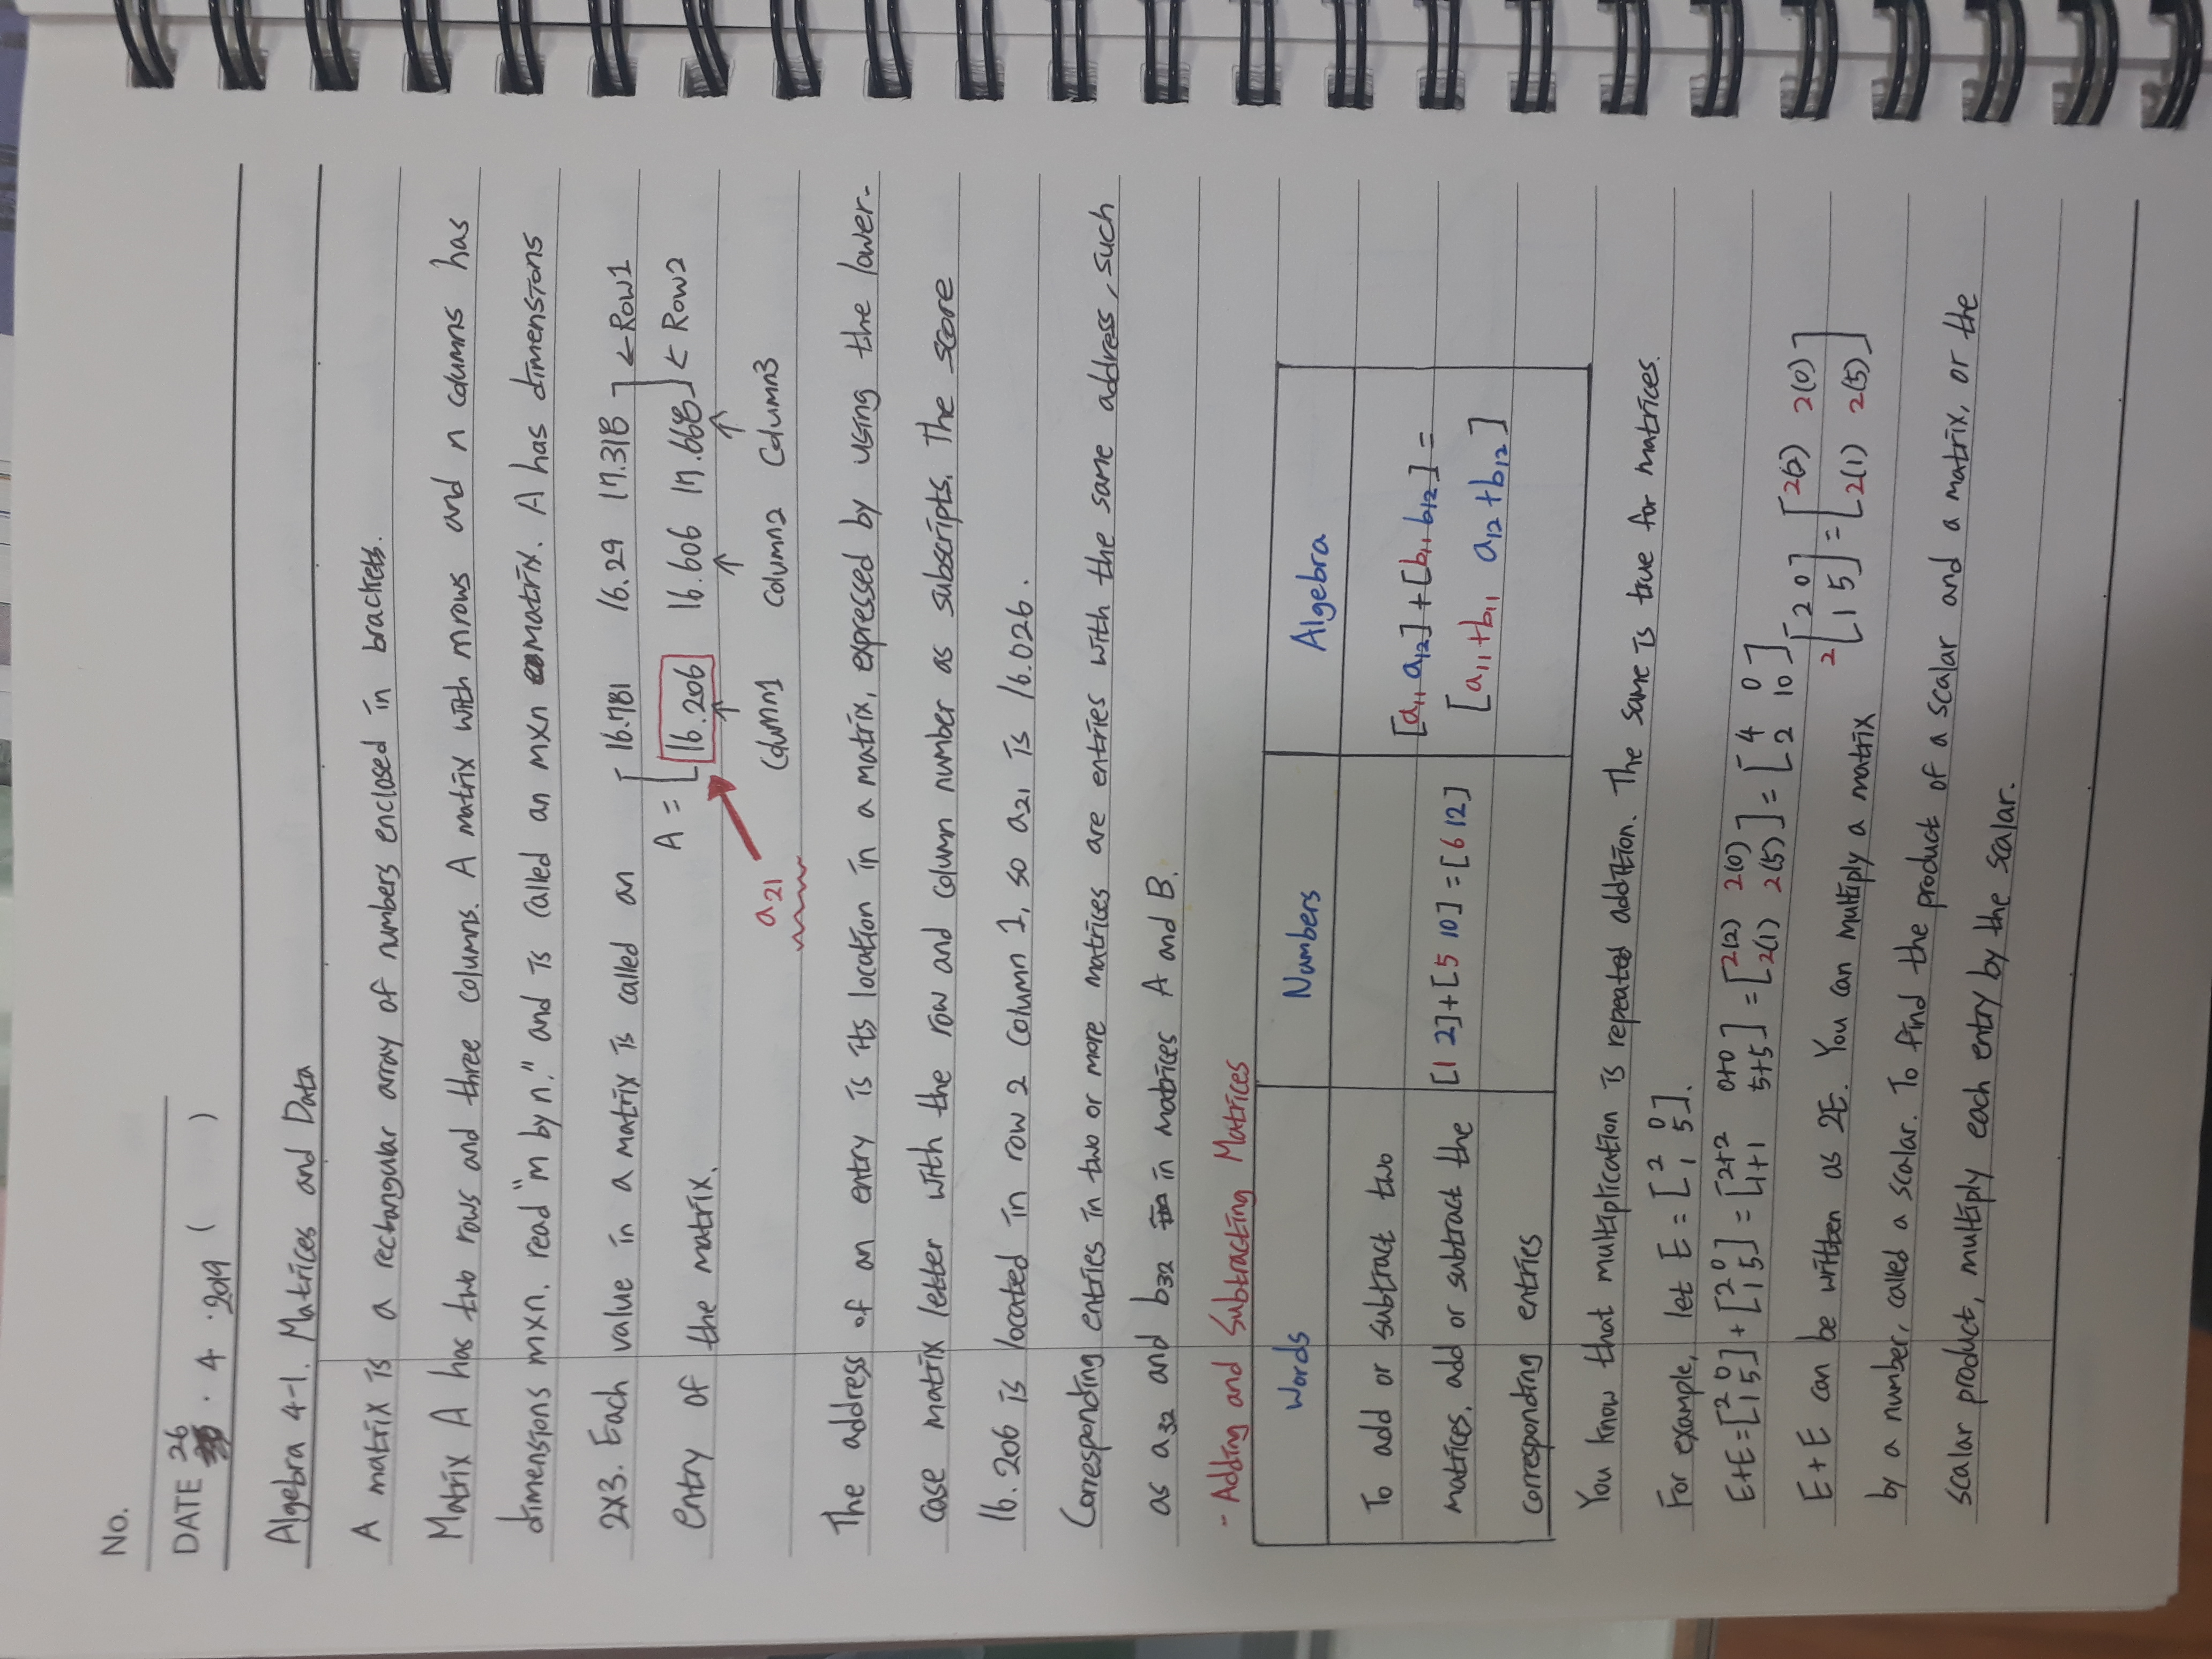 No.
DATE 26 · 4 · 2019 ( )
Algebra 4-1. Matrices and Data
A matrix is a rectangular array of numbers enclosed in brackets.
Matrix A has two rows and three columns. A matrix with m rows and n columns has
dimensions m×n. read "m by n." and is called an m×n matrix. A has dimensions
2×3. Each value in a matrix is called an [16.781 16.29 17.318] ← Row1
entry of the matrix. A = [16.206 16.606 17.668] ← Row2
↑ ↑ ↑
a21 Column1 Column2 Column3
The address of an entry is its location in a matrix, expressed by using the lower-
case matrix letter with the row and column number as subscripts. The score
16.206 is located in row 2 column 1, so a21 is 16.026.
Corresponding entries in two or more matrices are entries with the same address, such
as a32 and b32 in matrices A and B.
- Adding and Subtracting Matrices
Words Numbers Algebra
To add or subtract two
matrices, add or subtract the [1 2]+[5 10]=[6 12] [a11 a12]+[b11 b12]=
corresponding entries [a11+b11 a12+b12]
You know that multiplication is repeated addition. The same is true for matrices.
For example, let E = [2 0
1 5].
E+E=[2 0
1 5]+[2 0
1 5]=[2+2 0+0
1+1 5+5]=[2(2) 2(0)
2(1) 2(5)]=[4 0
2 10]
E + E can be written as 2E. You can multiply a matrix 2[2 0
1 5]=[2(2) 2(0)
2(1) 2(5)]
by a number, called a scalar. To find the product of a scalar and a matrix, or the
scalar product, multiply each entry by the scalar.